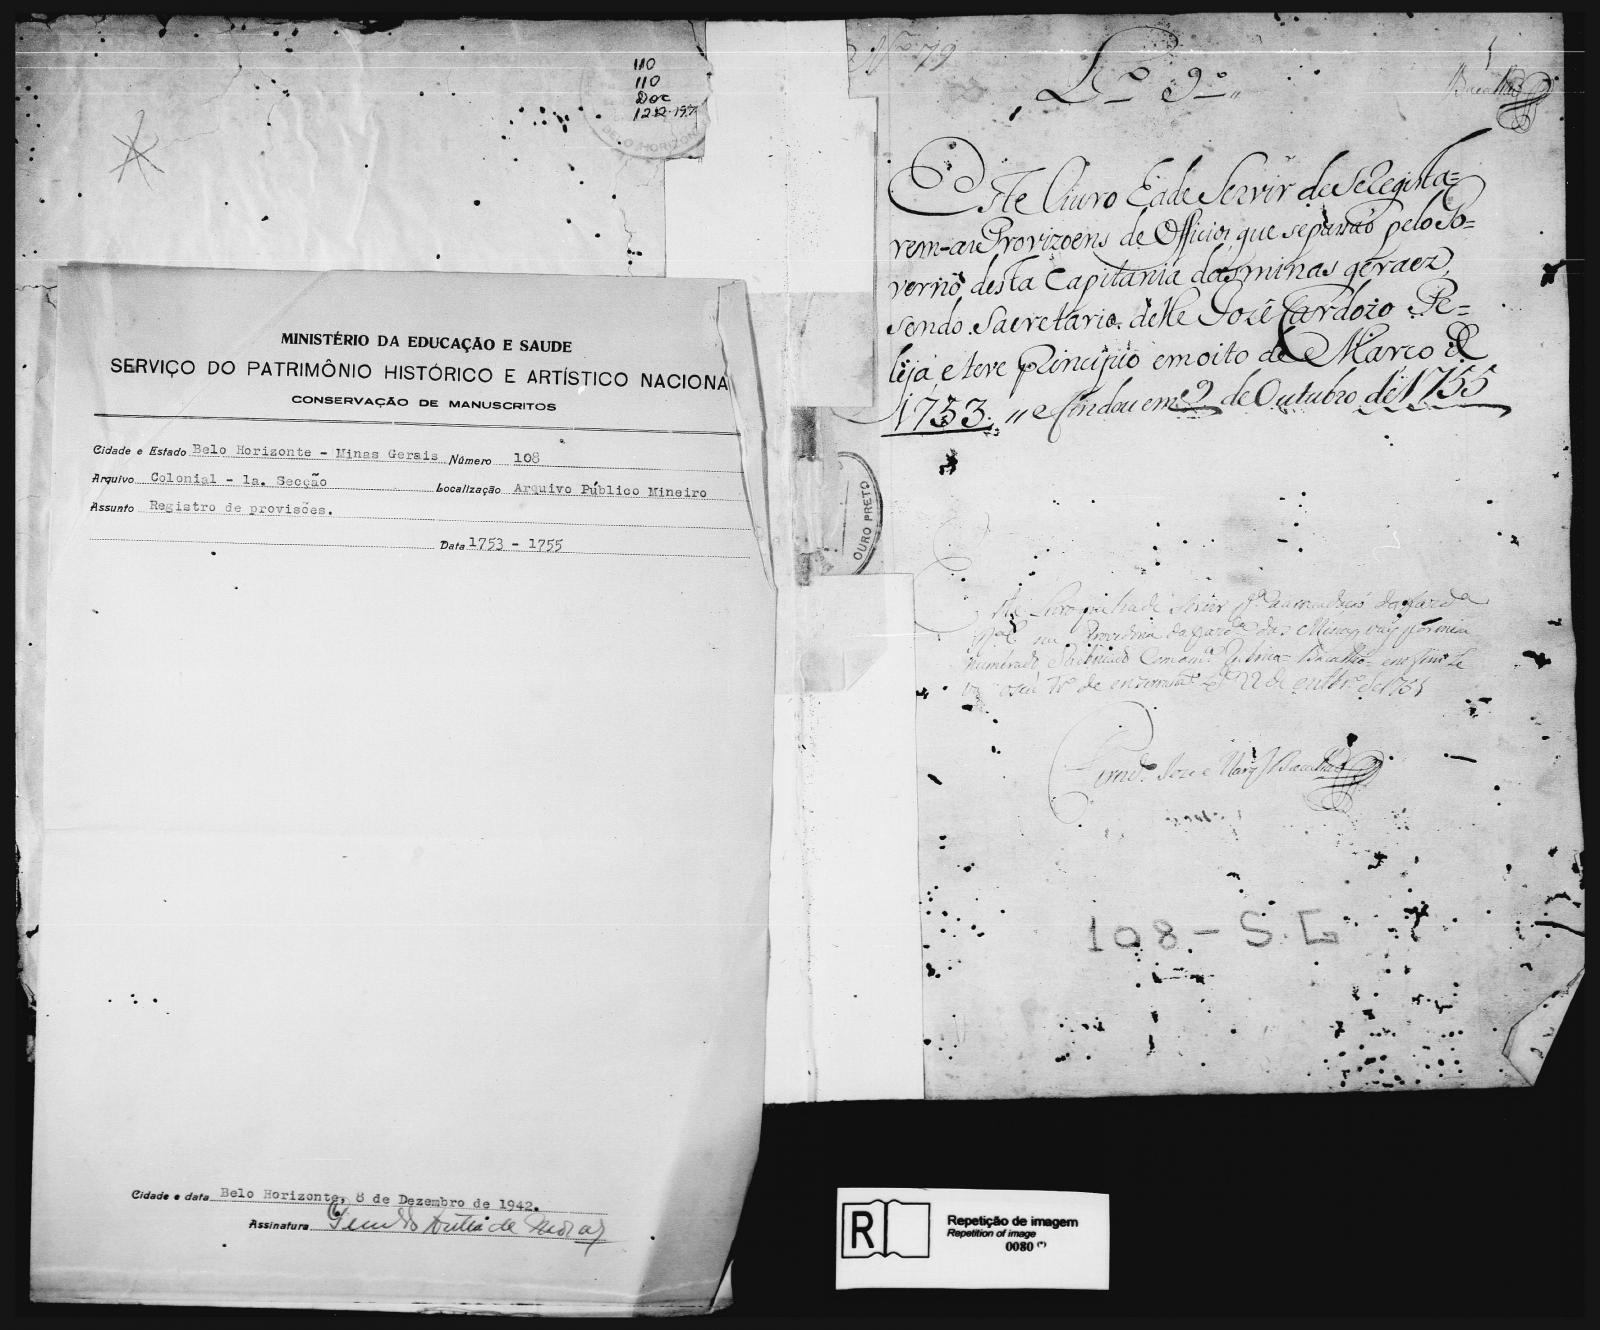 110
110
Doc
BELO HORIZONTE
MINISTÉRIO DA EDUCAÇÃO E SAUDE
SERVIÇO DO PATRIMÔNIO HISTÓRICO E ARTÍSTICO NACIONA
CONSERVAÇÃO DE MANUSCRITOS
Cidade e Estado Belo Horizonte - Minas Gerais Número 108
Arquivo Colonial - 1a. Secção Localização Arquivo Público Mineiro
Assunto Registro de provisões.
Data 1753 - 1755
Cidade e data Belo Horizonte, 8 de Dezembro de 1942.
Assinatura
Nº 79
Lº 9º
Este Livro hade Servir de se Regista=
rem-as Provizoens de Officios que separão pelo Go=
verno desta Capitania das minas geraez,
sendo Sacretario delle Jozê Cardozo Pe=
leja, e teve Principio em oito de Março de
1753. " e findou em 9 de Outubro de 1755
OURO PRETO
Este Livro que hade Servir pª
na Provedoria da fazdª das Minas vay por mim
numerado Rubricado
de 22 de
108 - S.G
R
Repetição de imagem
Repetition of image
0080 (*)